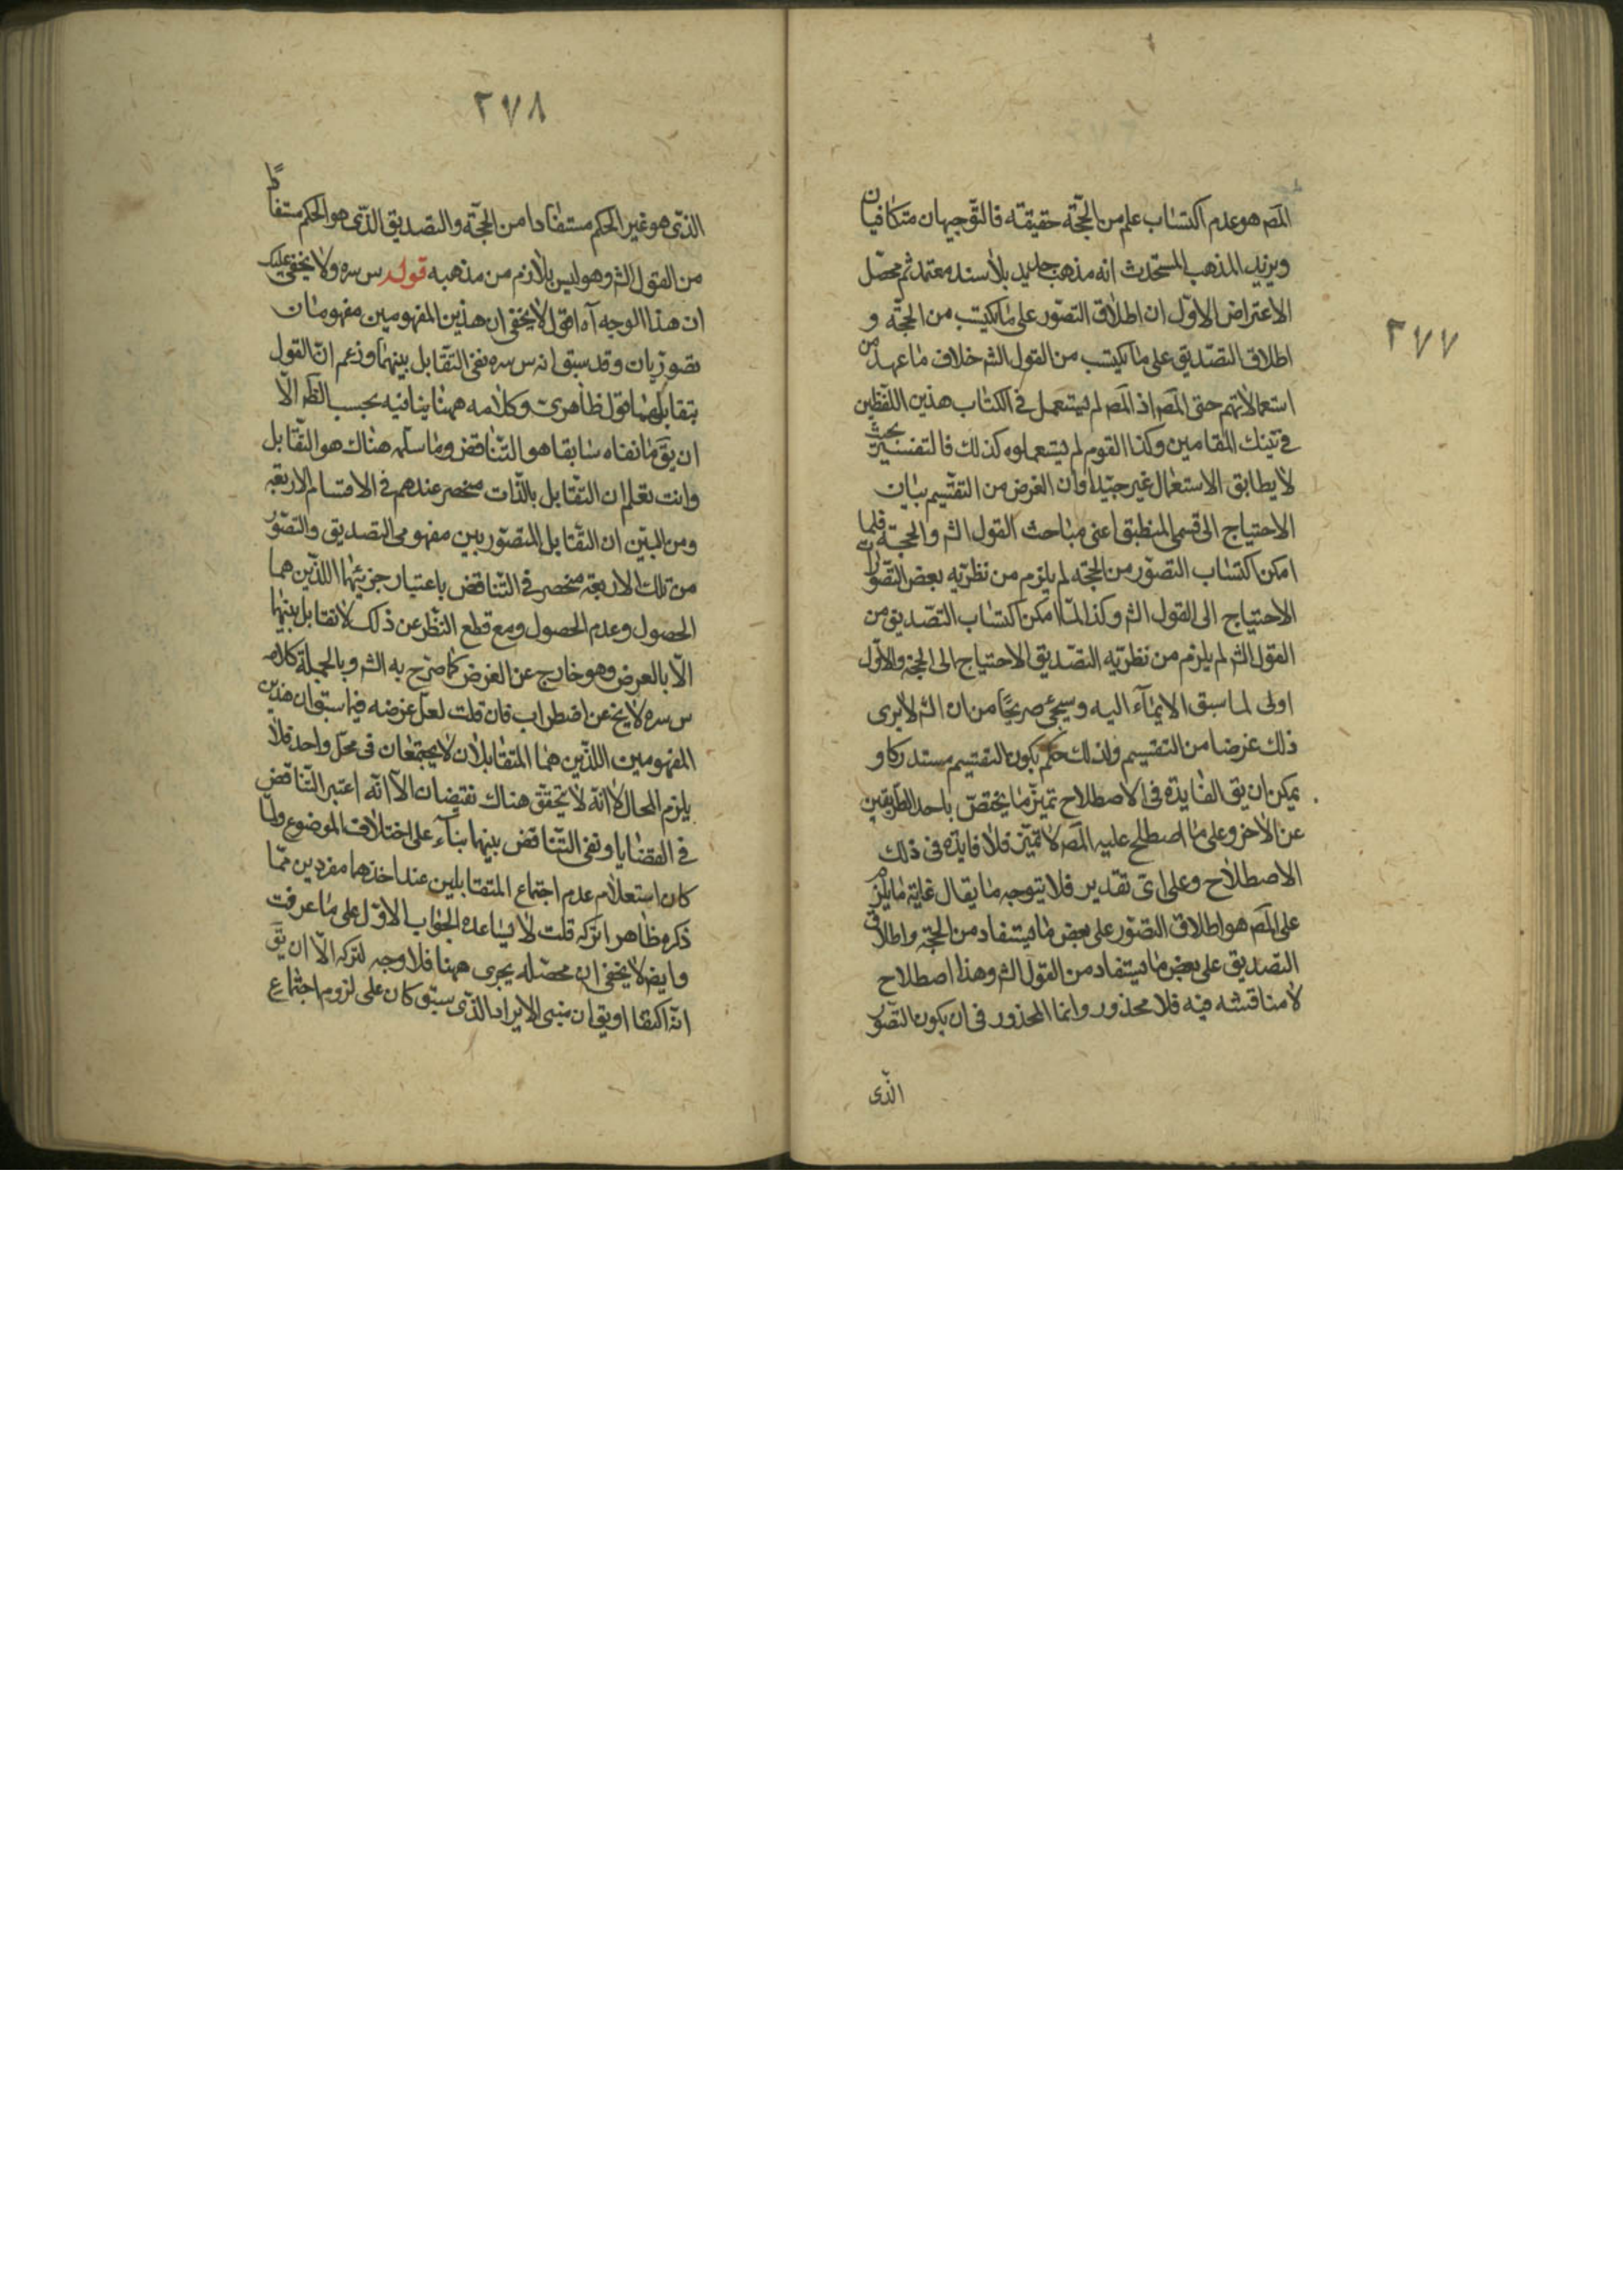 ٢٧٧
المصر هو عدم اكتساب علم من الحجّة حقيقته فالتوجيهان متكافيان
ويزيد المذهب المستحدث انه مذهب جديد بلا سند معتمد ثم محصّل
الاعتراض الاوّل ان اطلاق التصوّر على ما يكتسب من الحجّة و
اطلاق التصديق على ما يكتسب من القول الشر خلاف ما عهد من
استعمالاتهم حتى المصر اذ المصر لم يستعمل في الكتاب هذين اللفظين
في تينك المقامين وكذا القوم لم يستعملوه كذلك فالتفسير بحيث
لا يطابق الاستعمال غير جيّد او ان الغرض من التقسيم بيان
الاحتياج الى قسمي المنطق اعنى مباحث القول الشر والحجة فلما
امكن اكتساب التصوّر من الحجة لم يلزم من نظريّه بعض التصورات
الاحتياج الى القول الشر وكذا لمّا امكن اكتساب التصديق من
القول الشر لم يلزم من نظريّه التصديق الاحتياج الى الحجة والاوّل
اولى لما سبق الايماء اليه وسيجئ صريحا من ان الشر لا يرى
ذلك غرضا من التقسيم ولذلك حكم بكون التقسيم مستدركا و
يمكن ان يق الفايدة في الاصطلاح تميز ما يختص باحد الطريقين
عن الاخر وعلى ما اصطلح عليه المصر لا تميّز فلا فايدة في ذلك
الاصطلاح وعلى اى تقدير فلا يتوجه ما يقال غاية ما يلزم
على المصر هو اطلاق التصوّر على بعض ما يستفاد من الحجة واطلاق
التصديق على بعض ما يستفاد من القول الشر وهذا اصطلاح
لا مناقشه فيه فلا محذور وانما المحذور في ان يكون التصوّر
الذى
٢٧٨
الذى هو غير الحكم مستفادا من الحجّة والتصديق الذّى هو الحكم مستفادًا
من القول الشر وهو ليس بلازم من مذهبه قوله س سره ولا يخفى عليك
ان هذا الوجه آه اقول لا يخفى ان هذين المفهومين مفهومان
تصوريّان وقد سبق انه س سره نفى التقابل بينهما وزعم انّ القول
بتقابلهما قول ظاهرى وكلامه ههنا ينافيه بحسب الظر الّا
ان يق ما نفاه سابقا هو التناقض وما سلّمه هناك هو التقابل
وانت تعلم ان التقابل بالذّات منحصر عندهم في الاقسام الاربعة
ومن البيّن ان التقابل المتصوّر بين مفهومى التصديق والتصوّر
من تلك الاربعة منحصر في التناقض باعتبار جزئيهما اللذّين هما
الحصول وعدم الحصول ومع قطع النظر عن ذلك لا تقابل بينهما
الّا بالعرض وهو خارج عن الغرض كما صرّح به الشر وبالجملة كلامه
س سره لا يخ عن اضطراب فان قلت لعلّ غرضه فيما سبق ان هذين
المفهومين اللذّين هما المتقابلان لا يجتمعان في محلّ واحد فلا
يلزم المحال لا انّه لا يتحقق هناك نقيضان الّا انّه اعتبر التناقض
في القضايا ونفى التناقض بينهما بناء على اختلاف الموضوع ولمّا
كان استعلام عدم اجتماع المتقابلين عند اخذهما مفردين ممّا
ذكره ظاهرا تركه قلت لا يساعده الجواب الاوّل على ما عرفت
وايضا لا يخفى ان محصّله يجرى ههنا فلا وجه لتركه الّا ان يق
انّه اكتفا او يق ان مبنى الايراد الذّى سبق كان على لزوم اجتماع